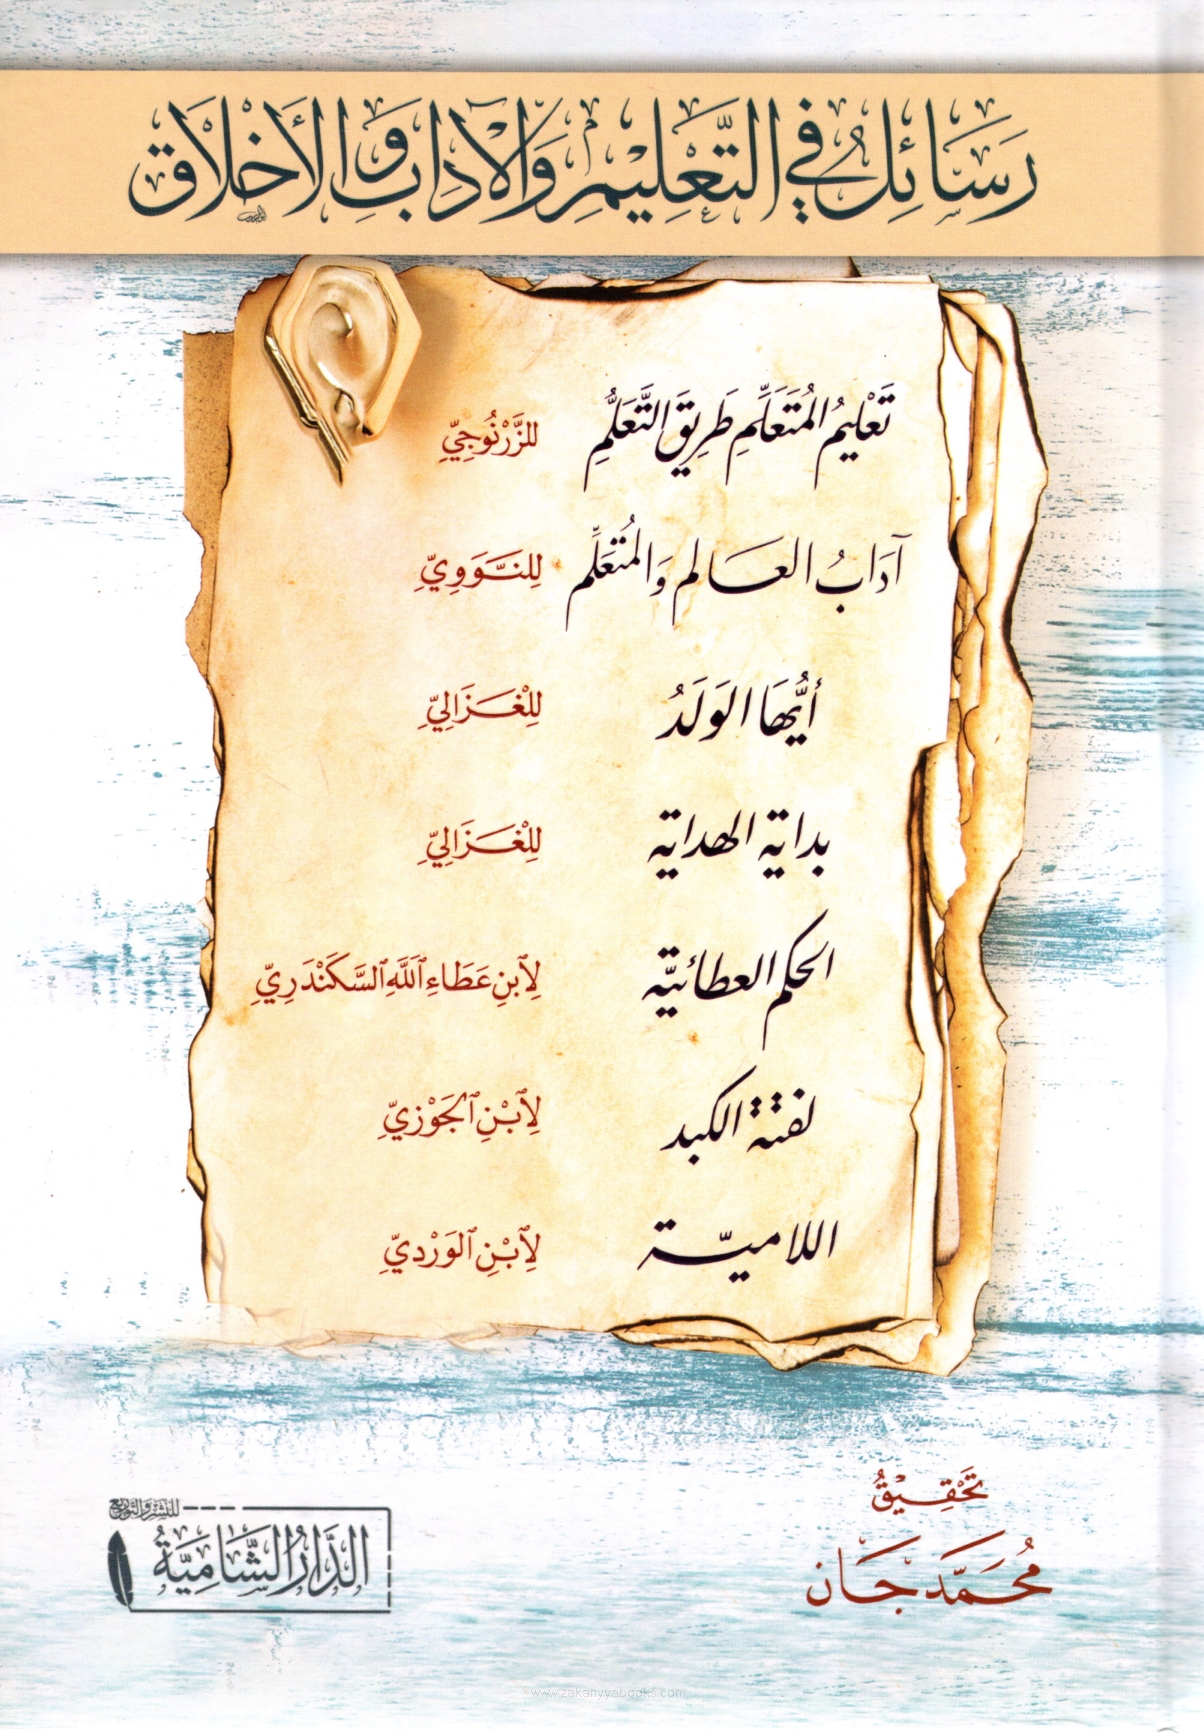 رَسَائِلُ فِي التَّعْلِيمِ وَالْآدَابِ وَالْأَخْلَاقِ
تَعْلِيمُ المُتَعَلِّمِ طَرِيقَ التَّعَلُّمِ لِلزَّرْنُوجِيِّ
آدَابُ العَالِمِ وَالمُتَعَلِّمِ لِلنَّوَوِيِّ
أَيُّهَا الوَلَدُ لِلْغَزَالِيِّ
بداية الهداية لِلْغَزَالِيِّ
الحكم العطائيّة لِٱبنِ عَطَاءِ ٱللَّهِ ٱلسَّكَنْدَرِيِّ
لفتة الكبد لِٱبْنِ ٱلجَوْزِيِّ
اللاميّة لِٱبْنِ ٱلوَرْدِيِّ
تَحْقِيقُ
مُحَمَّد جَان
للنشر والتوزيع
الدَّارُ الشَّامِيَّةُ
www.zakariyyabooks.com